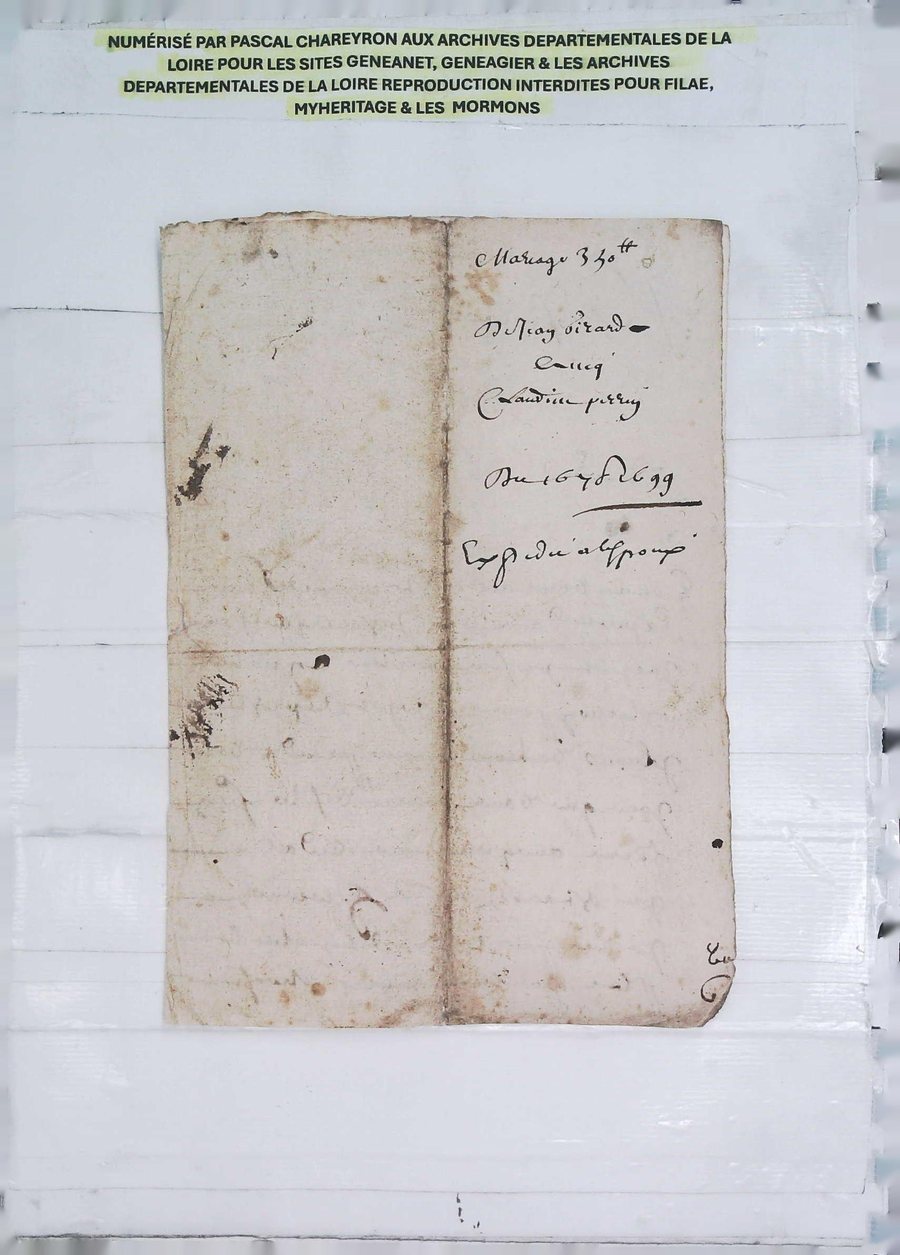 NUMÉRISÉ PAR PASCAL CHAREYRON AUX ARCHIVES DEPARTEMENTALES DE LA
LOIRE POUR LES SITES GENEANET, GENEAGIER & LES ARCHIVES
DEPARTEMENTALES DE LA LOIRE REPRODUCTION INTERDITES POUR FILAE,
MYHERITAGE & LES MORMONS
Mariage
De Jean
Claudine perrin
Du 1699
Expedie a lespoux